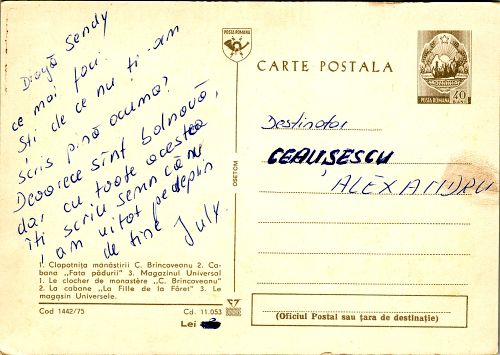 Dragă Sendy
ce mai faci.
Ști de ce nu ți-am
scris pînă acuma?
Deoarece sînt bolnavă,
dar cu toate acestea
îți scriu semn că nu
am uitat pe deplin
de tine July.
1. Clopotnița mănăstirii C. Brîncoveanu 2. Ca-
bana „Fata pădurii" 3. Magazinul Universal
1. Le clocher de monastère „C. Brîncoveanu"
2. La cabane „La Fille de la Fôret" 3. Le
magasin Universele.
Cod 1442/75 Cd. 11.053
Lei
OSETOM
POSTA ROMANA
CARTE POSTALA
POSTA ROMANA 40
Destinator
CEAUȘESCU
ALEXANDRU
(Oficiul Postal sau țara de destinație)